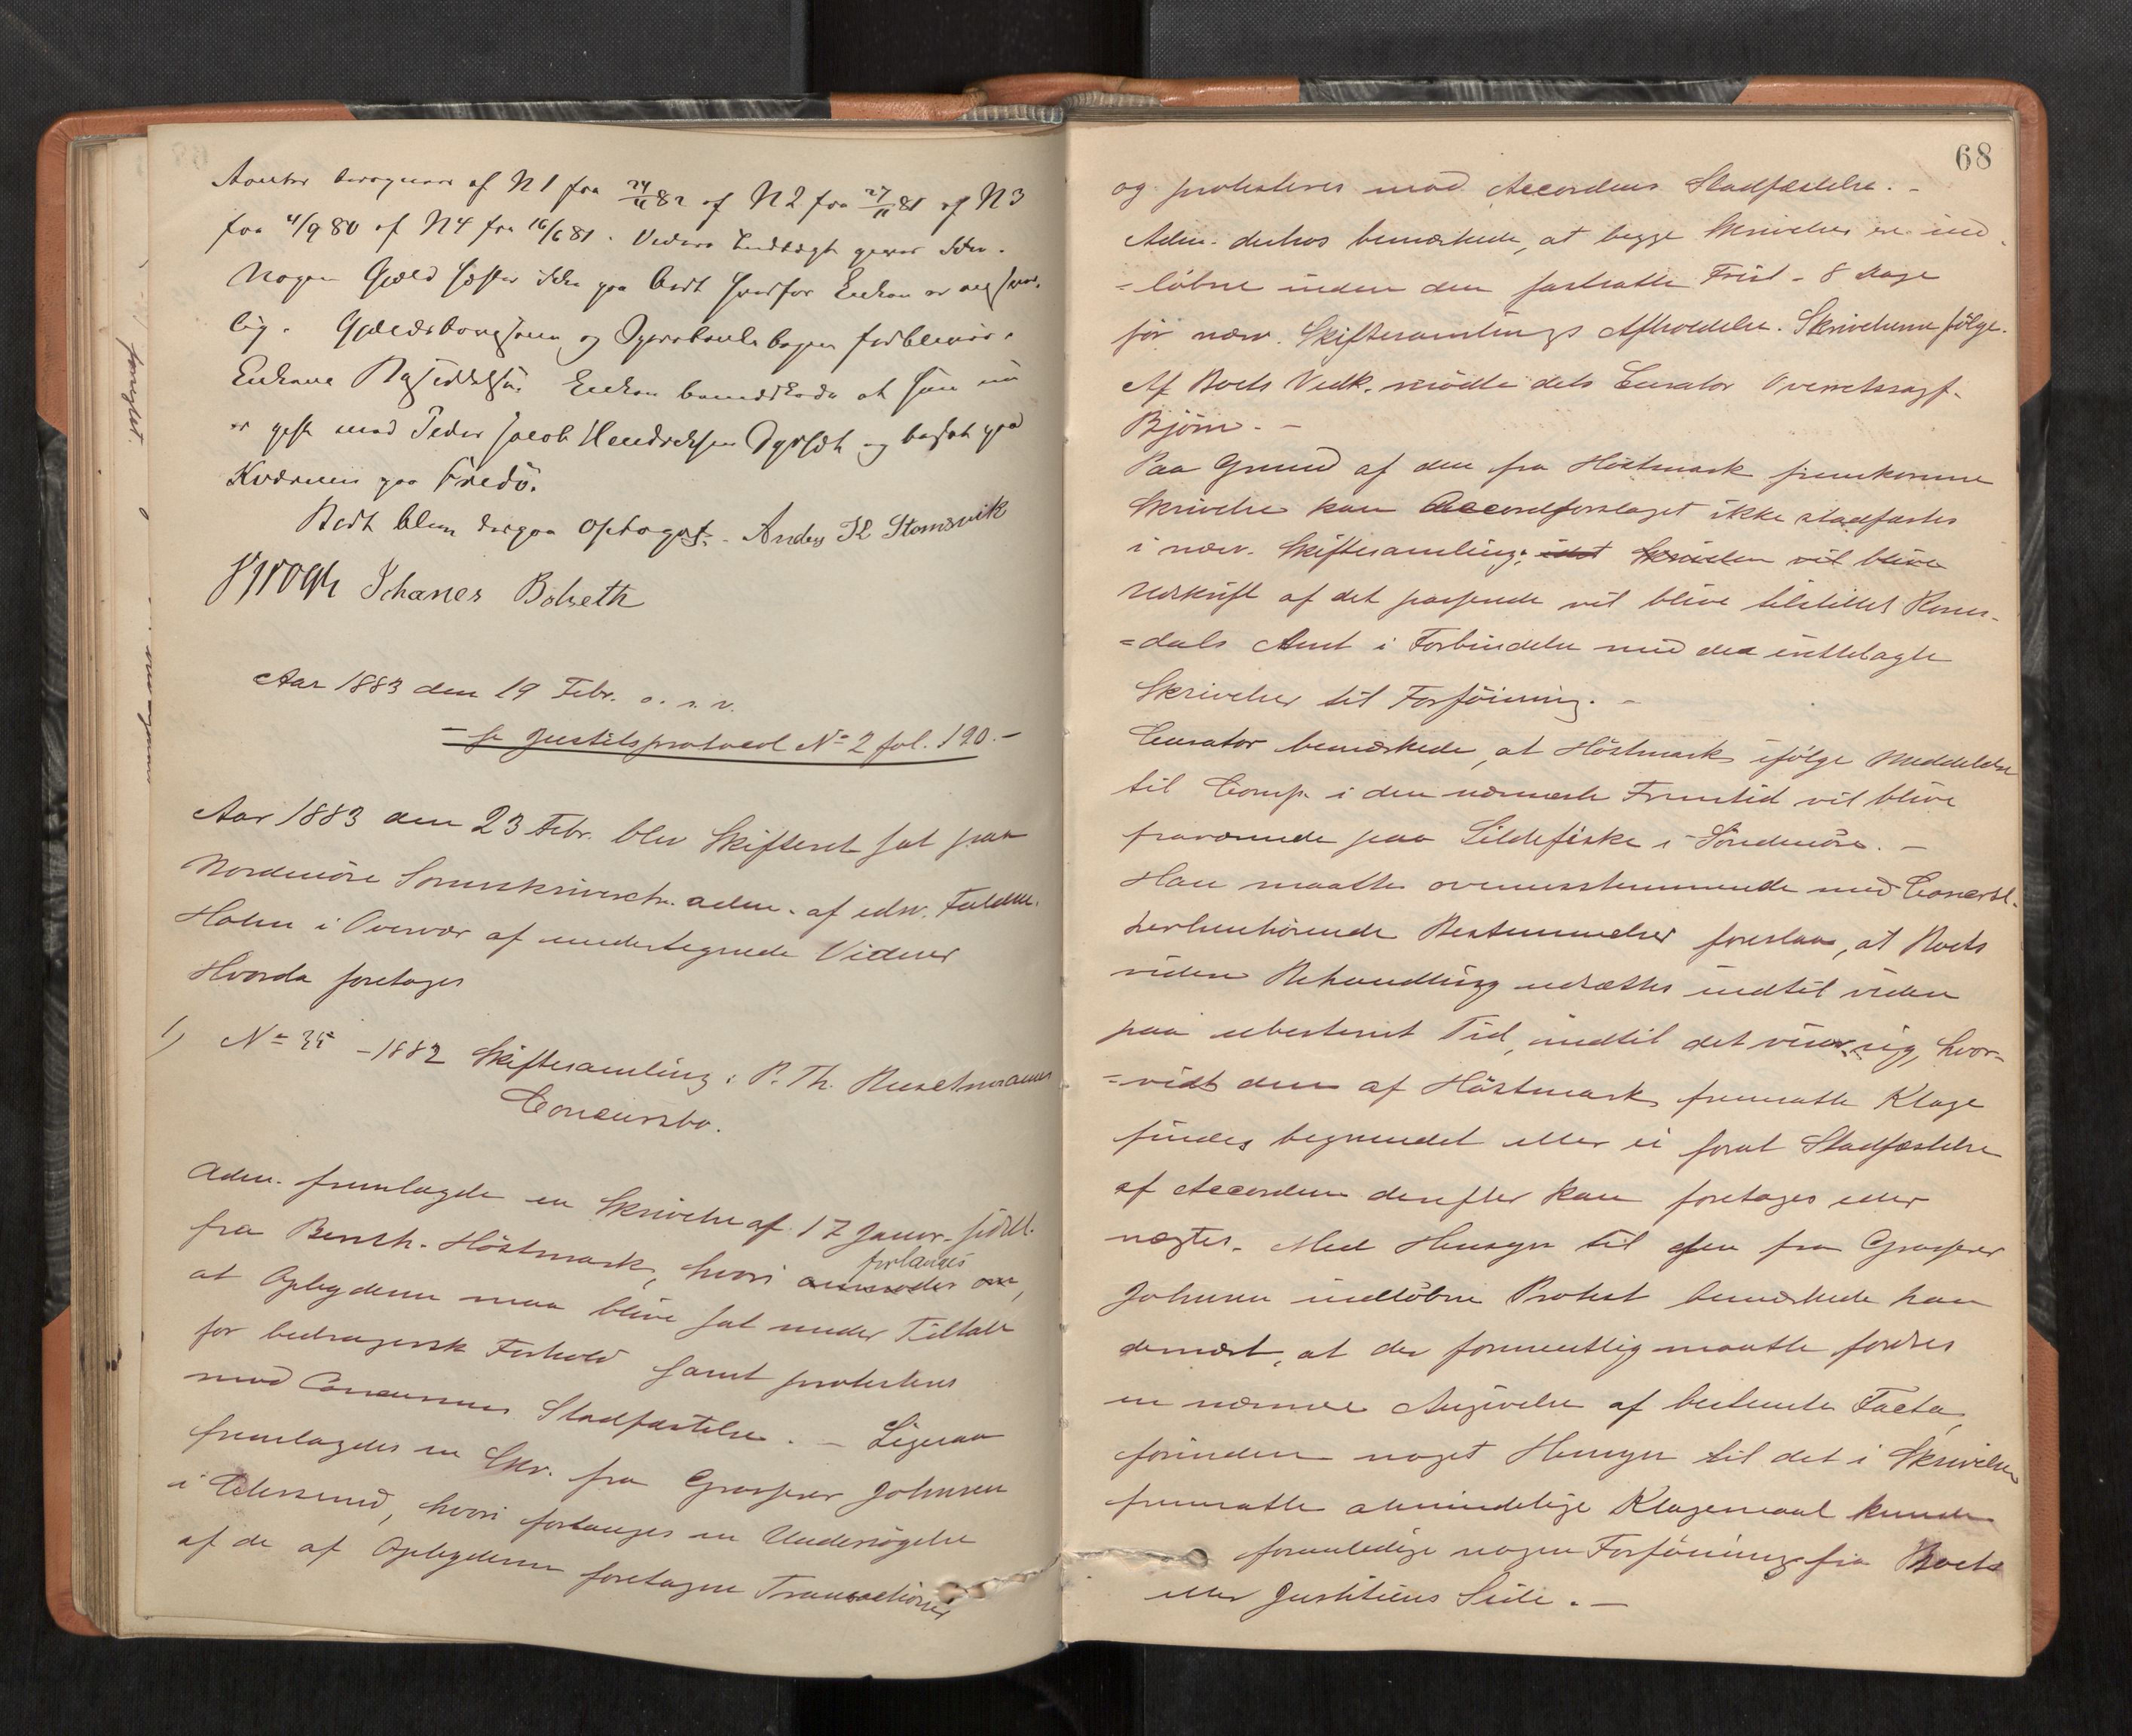 af N 1 fra 24/11 82 af N 2 fra 27/11 81 af N 3
fra 4/9 80 af N 4 fra 16/6 81. Videre Indtægt gives ikke.
Nogen Gjæld hæfter ikke paa Boet hvorfor Enken er ansvar-
lig. og
Enkens Enken bemærkede at hun nu
er gift med Peder Jacob Hendriksen og bosat paa
Kvernen paa Fredö.
Boet blev derpaa optaget. - Anders K Stomsvik
Krogh Johanes Bolseth
Aar 1883 den 19 Febr. o. s. v.
- se Justitsprotocol No 2 fol. 190. -
Aar 1883 den 23 Febr. blev Skifteret sat paa
Nordmöre Sorenskriverk. adm. af edsv. Fuldm.
Holm i Overvær af undertegnede Vidner
Hvorda foretages
1) No 35 - 1882 Skiftesamling i P. Th.
Concursbo.
Adm. fremlagde en Skrivelse af 17 Janr. sidstl.
fra Bernh. Höstmark, hvori anmodes om, forlanges
at Opbyderen maa blive sat under Tiltale
for bedragersk Forhold samt protesteres
mod Stadfæstelse. - Ligesaa
fremlagdes en Skr. fra Grosserer Johnsen
i Aalesund, hvori forlanges en Undersögelse
af de af Opbyderen foretagne Transactioner
68
og protesteres mod Accordens Stadfæstelse. -
Adm. derhos bemærkede, at begge Skrivelser er ind-
=löbne inden den fastsatte Frist - 8 Dage
för nærv. Skiftesamlings Afholdelse. Skrivelserne fölge.
Af Boets Vedk. mödte dets Curator Overretssagf.
Björn. -
Paa Grund af den fra Höstmark fremkomne
Skrivelse kan Accordforslaget ikke stadfæstes
i nærv. Skiftesamling; idet Skrivelsen vil blive
Udskrift af det passerede vil blive tilstillet Roms-
=dals Amt i Forbindelse med de indlagte
Skrivelser til Forföining. -
Curator bemærkede, at Höstmark ifölge Meddelelse
til Comp. i den nærmeste Fremtid vil blive
fraværende paa Sildefiske i Söndmöre. -
Han maatte overensstemmende med Concursl.
herhenhörende Bestemmelser foreslaa, at Boets
videre Behandling udsættes indtil videre
paa ubestemt Tid, indtil det viser sig, hvor-
=vidt den af Höstmark fremsatte Klage
findes begrundet eller ei forat Stadfæstelse
af Accorden derefter kan foretages eller
nægtes. Med Hensyn til den fra Grosserer
Johnsen indlöbne Protest bemærkede han
dernæst, at der formentlig maatte fordres
en nærmere Angivelse af bestemte Facta,
forinden noget Hensyn til det i Skrivelsen
fremsatte almindelige Klagemaal kunde
foranledige nogen Forföining fra Boets
eller Justitiens Side. -